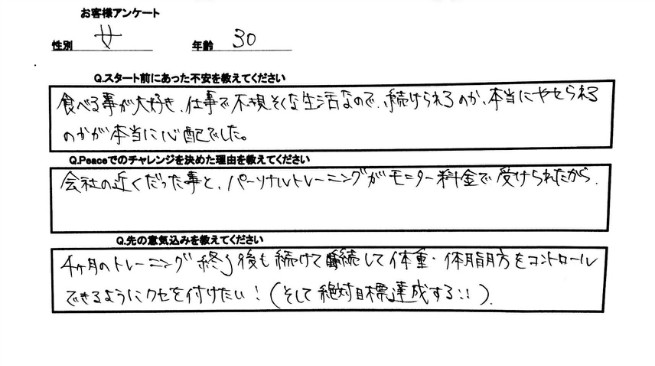 お客様アンケート
性別 女 年齢 30
Q.スタート前にあった不安を教えてください
食べる事が大好き、仕事で不規そくな生活なので、続けられるのか、本当にやせられる
のかが本当に心配でした。
Q.Peaceでのチャレンジを決めた理由を教えてください
会社の近くだった事と、パーソナルトレーニングがモニター料金で受けられたから.
Q.先の意気込みを教えてください
4ヶ月のトレーニング終了後も続けて継続して体重・体脂肪をコントロール
できるようにクセを付けたい!(そして絶対目標達成する!!).